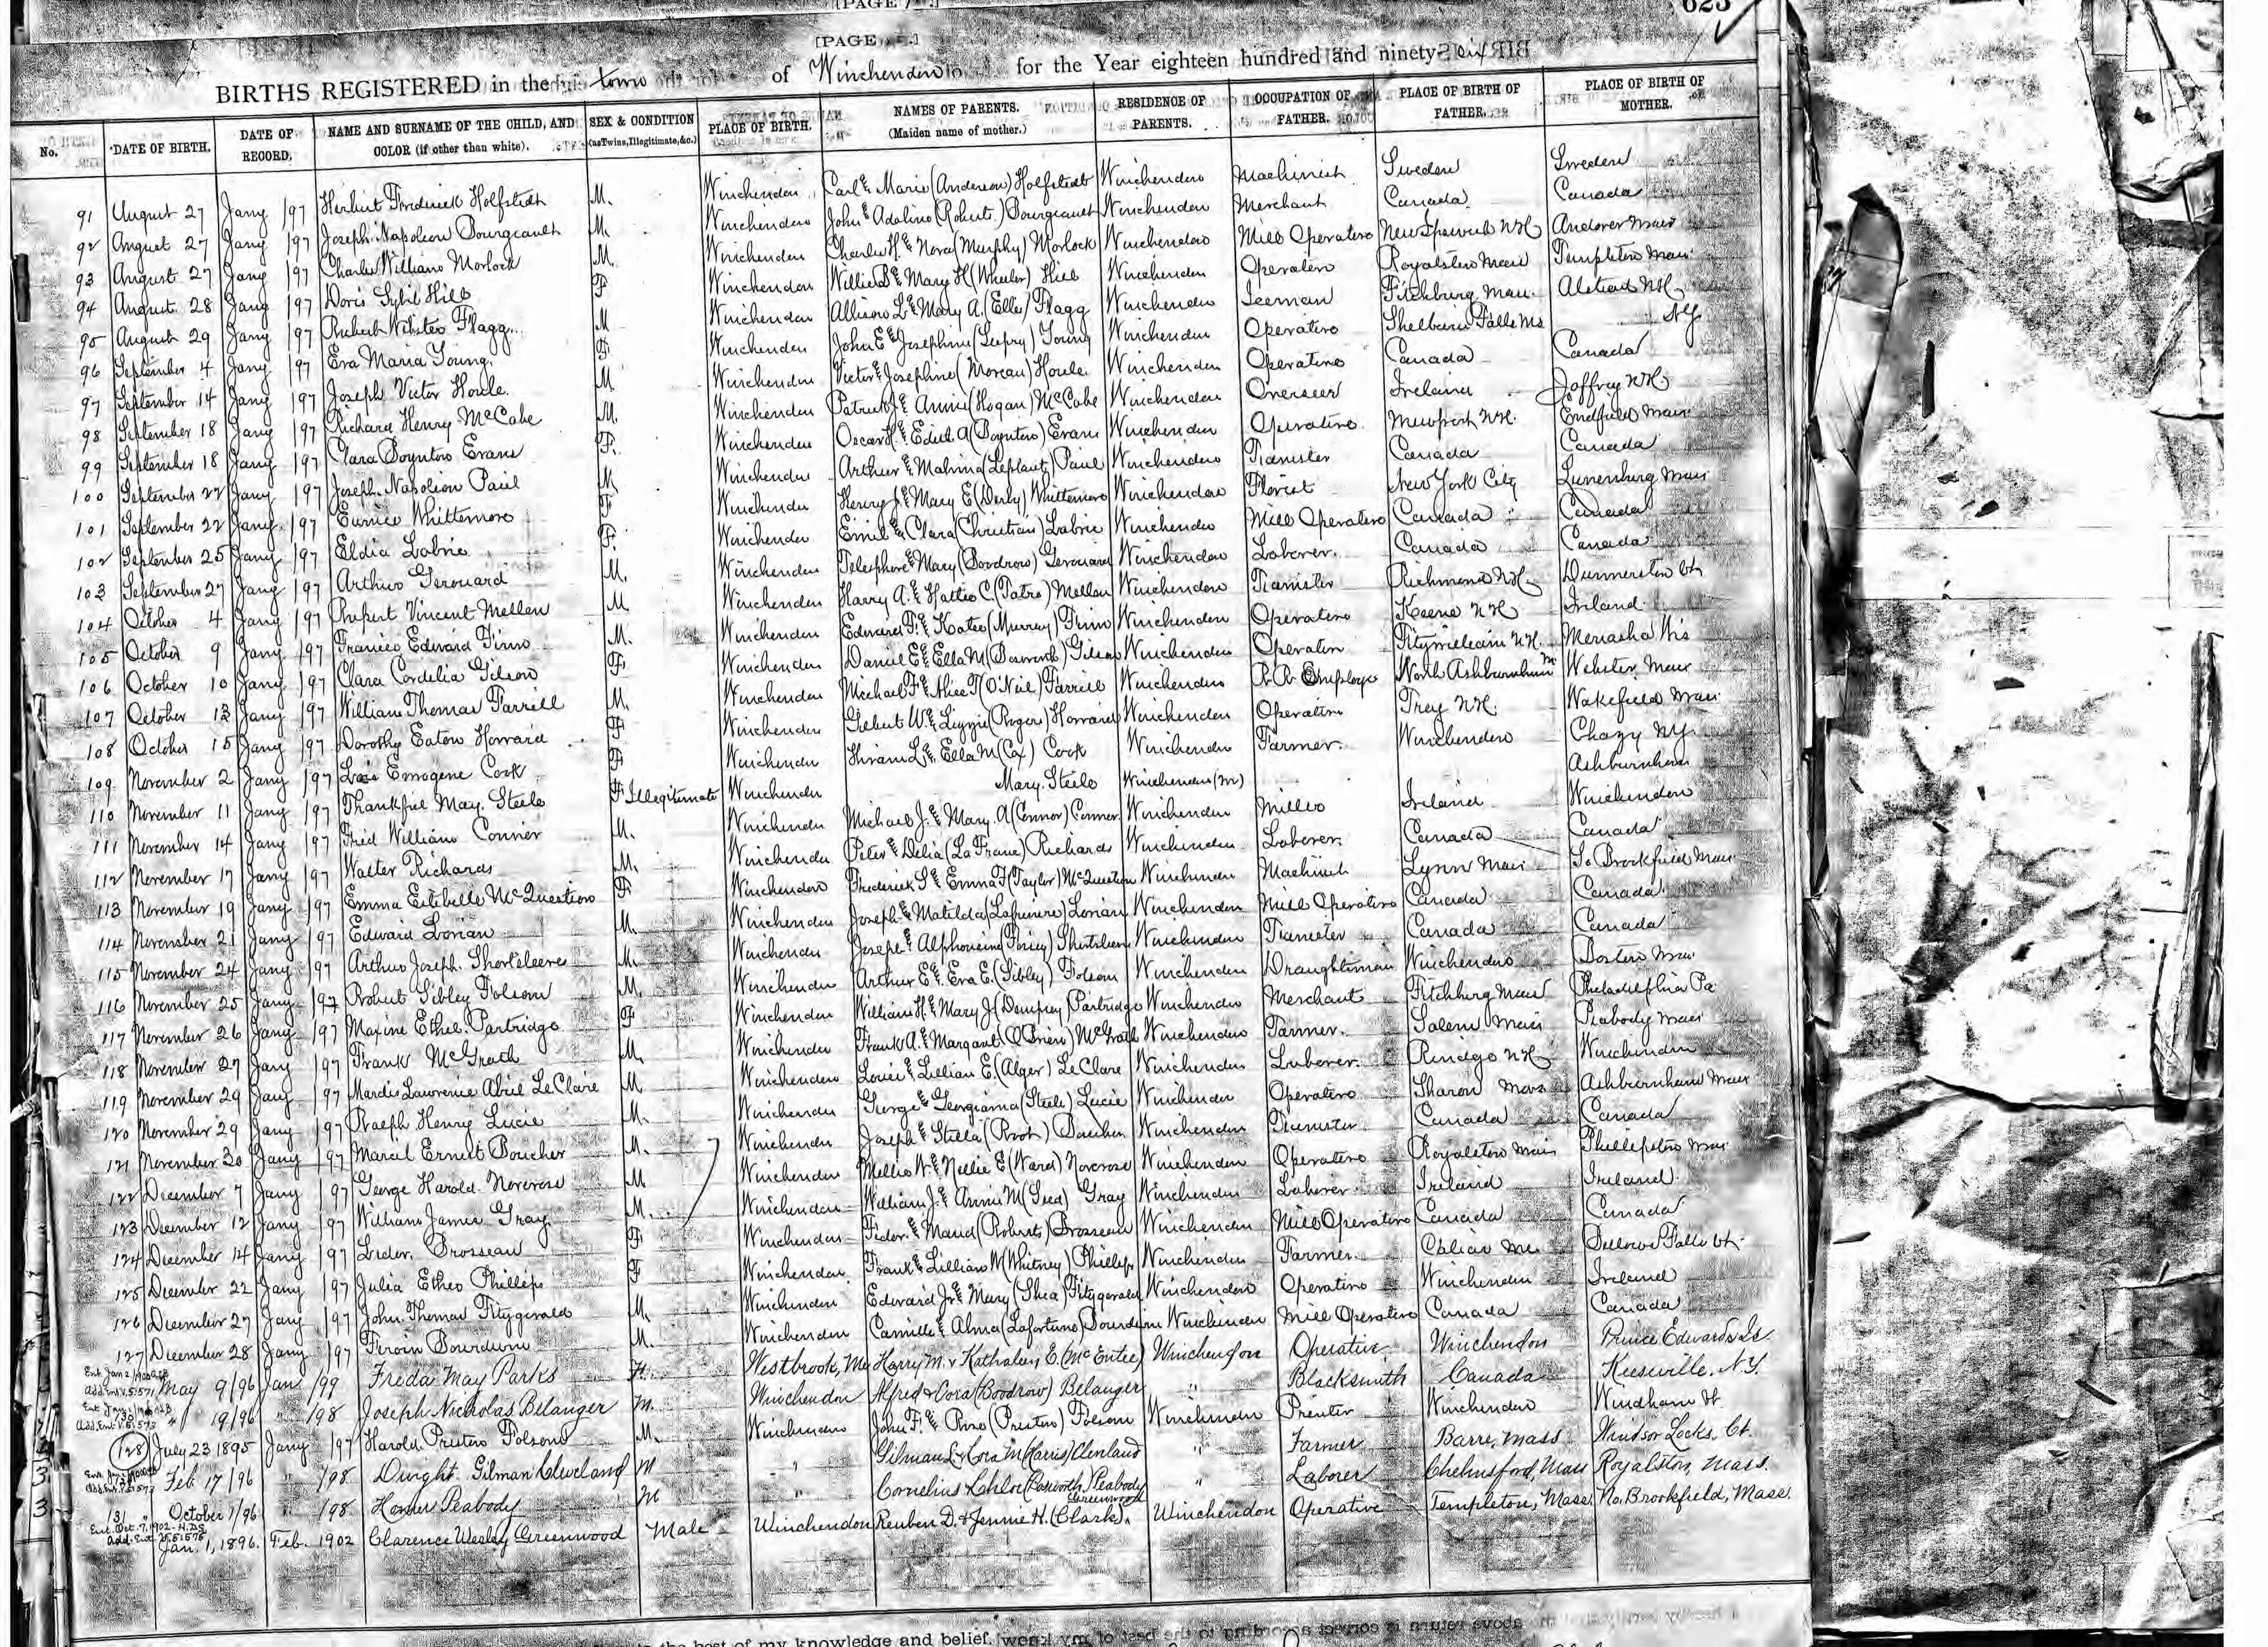 [PAGE
623
BIRTHS REGISTERED in the town of Winchendon for the Year eighteen hundred and ninety six
No. DATE OF BIRTH. DATE OF RECORD. NAME AND SURNAME OF THE CHILD, AND COLOR (if other than white). SEX & CONDITION (as Twins, Illegitimate, &c.) PLACE OF BIRTH. NAMES OF PARENTS. (Maiden name of mother.) RESIDENCE OF PARENTS. OCCUPATION OF FATHER. PLACE OF BIRTH OF FATHER. PLACE OF BIRTH OF MOTHER.
91 August 27 Jany /97 Herbert Frederick Holfstedt M. Winchendon Carl & Marie (Anderson) Holfstedt Winchendon Machinist Sweden Sweden
92 August 27 Jany /97 Joseph Napoleon Bourgeault M. Winchendon John & Adaline (Roberts) Bourgeault Winchendon Merchant Canada Canada
93 August 27 Jany /97 Charles William Morlock M. Winchendon Charles H. & Nora (Murphy) Morlock Winchendon Mill Operative New Ipswich N.H. Andover Mass
94 August 28 Jany /97 Doris Sybil Hill F Winchendon Willie B & Mary H (Wheeler) Hill Winchendon Operative Royalston Mass Templeton Mass
95 August 29 Jany /97 Robert Webster Flagg M Winchendon Allison L & Mary A. (Ellis) Flagg Winchendon Iceman Fitchburg Mass. Alstead N.H.
96 September 4 Jany /97 Eva Maria Young F Winchendon John E & Josephine Young Winchendon Operative Shelburne Falls Ms N.Y.
97 September 14 Jany /97 Joseph Victor Houle M. Winchendon Victor & Josephine (Moreau) Houle Winchendon Operative Canada Canada
98 September 18 Jany /97 Richard Henry McCabe M. Winchendon Patrick J & Annie (Hogan) McCabe Winchendon Overseer Ireland Jaffrey N.H.
99 September 18 Jany /97 Clara Boynton Evans F. Winchendon Oscar H. & Edith A (Boynton) Evans Winchendon Operative Newport N.H. Enfield Mass
100 September 22 Jany /97 Joseph Napoleon Paul M Winchendon Arthur & Malvina (Leplant) Paul Winchendon Teamster Canada Canada
101 September 22 Jany /97 Eunice Whittemore F Winchendon Henry J & Mary E (Derby) Whittemore Winchendon Florist New York City Lunenburg Mass
102 September 25 Jany /97 Eldia Labrie F. Winchendon Emil & Clara (Christian) Labrie Winchendon Mill Operative Canada Canada
103 September 27 Jany /97 Arthur Gerouard M. Winchendon Telesphore & Mary (Boodrow) Gerouard Winchendon Laborer Canada Canada
104 October 4 Jany /97 Rupert Vincent Mellen M Winchendon Harry A. & Hattie C (Tatro) Mellen Winchendon Teamster Richmond N.H. Dummerston Vt
105 October 9 Jany /97 Francis Edward Finn M. Winchendon Edward F. & Katie (Murray) Finn Winchendon Operative Keene N.H. Ireland
106 October 10 Jany /97 Clara Cordelia Gilson F. Winchendon Daniel E & Ella M Gilson Winchendon Operative Fitzwilliam N.H. Menasha Wis
107 October 13 Jany /97 William Thomas Farrell M. Winchendon Michael F & Alice T (O'Neil) Farrell Winchendon R.R. Employe North Ashburnham M Webster Mass
108 October 15 Jany /97 Dorothy Eaton Howard F Winchendon Gilbert W & Lizzie (Rogers) Howard Winchendon Operative Troy N.H. Wakefield Mass
109 November 2 Jany /97 Lois Emogene Cook F Winchendon Hiram L & Ella M (Cox) Cook Winchendon Farmer Winchendon Chazy N.Y.
110 November 11 Jany /97 Thankful May Steele F Illegitimate Winchendon Mary Steele Winchendon (M) Ashburnham
111 November 14 Jany /97 Fred William Conner M. Winchendon Michael J. & Mary A (Connor) Conner Winchendon Ireland Winchendon
112 November 17 Jany /97 Walter Richards M. Winchendon Peter & Delia (La Frane) Richards Winchendon Laborer Canada Canada
113 November 19 Jany /97 Emma Estebelle McQuestion F Winchendon Frederick S & Emma F (Taylor) McQuestion Winchendon Machinist Lynn Mass So Brookfield Mass
114 November 21 Jany /97 Edward Lorian M. Winchendon Joseph & Matilda Lorian Winchendon Mill Operative Canada Canada
115 November 24 Jany /97 Arthur Joseph Shortsleeve M. Winchendon Winchendon Teamster Canada Canada
116 November 25 Jany /97 Robert Sibley Folsom M. Winchendon Arthur E & Eva E. (Sibley) Folsom Winchendon Draughtsman Winchendon Boston Mass
117 November 26 Jany /97 Maxine Ethel Partridge F Winchendon William H & Mary J (Dempsey) Partridge Winchendon Merchant Fitchburg Mass Philadelphia Pa
118 November 27 Jany /97 Frank McGrath M. Winchendon Frank A. & Margaret (O'Brien) McGrath Winchendon Farmer Salem Mass Peabody Mass
119 November 29 Jany /97 Lawrence Abiel LeClaire M Winchendon Louie & Lillian E. (Alger) LeClare Winchendon Laborer Rindge N.H. Winchendon
120 November 29 Jany /97 Ralph Henry Lucie M. Winchendon George & Georgianna (Steele) Lucie Winchendon Operative Sharon Mass Ashburnham Mass
121 November 30 Jany /97 Marcel Ernest Boucher M. Winchendon Joseph & Stella Boucher Winchendon Teamster Canada Canada
122 December 7 Jany /97 George Harold Norcross M Winchendon Mellie W. & Nellie E (Ward) Norcross Winchendon Operative Royalston Mass Phillipston Mass
123 December 12 Jany /97 William James Gray M. Winchendon William J. & Annie M Gray Winchendon Laborer Ireland Ireland
124 December 14 Jany /97 Brosseau F Winchendon & Maria (Roberts) Brosseau Winchendon Mill Operative Canada Canada
125 December 22 Jany /97 Julia Ethel Phillips F Winchendon Frank & Lillian M (Whitney) Phillips Winchendon Farmer Bellows Falls Vt
126 December 27 Jany /97 John Thomas Fitzgerald M. Winchendon Edward Jr & Mary (Shea) Fitzgerald Winchendon Operative Winchendon Ireland
127 December 28 Jany /97 Bourdeau M. Winchendon Camille & Alma (Lafortune) Winchendon Mill Operative Canada Canada
May 9/96 Jan /99 Freda May Parks F. Westbrook, Me Harry M. & Kathaleen E. (McEntee) Winchendon Operative Winchendon Prince Edwards Is.
" 19/96 " /98 Joseph Nicholas Belanger M. Winchendon Alfred & Cora (Boodrow) Belanger " Blacksmith Canada Keesville, N.Y.
128 July 23 1895 Jany /97 Harold Preston Folsom M. Winchendon John F. & Rose (Preston) Folsom Winchendon Printer Winchendon Windham Vt.
Feb. 17/96 " /98 Dwight Gilman Cleveland M " Gilman L & Cora M (Harris) Cleveland " Farmer Barre, Mass Windsor Locks, Ct.
131 October 1/96 " /98 Homer Peabody M " Cornelius & Chloe (Bosworth) Peabody " Laborer Chelmsford, Mass Royalston, Mass.
Ent. Oct. 7, 1902
Jan. 1, 1896. Feb. 1902 Clarence Wesley Greenwood Male Winchendon Reuben D. & Jennie H. (Clark) Greenwood Winchendon Operative Templeton, Mass. No. Brookfield, Mass.
the best of my knowledge and belief.